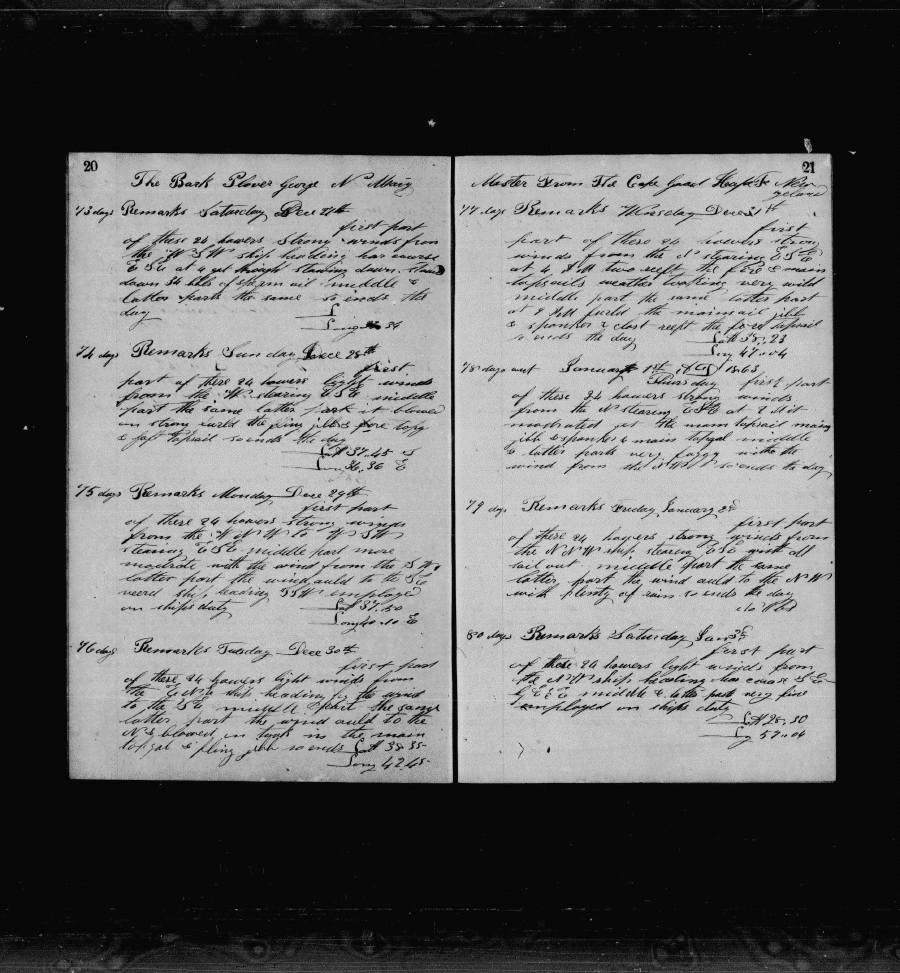 20
The Bark Plover George N Macy
73 days Remarks Saturday Dece 27th
first part
of these 24 howers strong winds from
the W S W ship heading har course
E S E at 4
down 34 bbls of sperm oil middle &
latter part the same so ends this
day
L
Long 34
74 days Remarks Sunday Dece 28th
first
part of these 24 howers light winds
from the W stearing E S E middle
part the same latter part it blowed
on strong furld the jibb & fore topg
& topsail so ends the day
Lat 37..45 S
Long 36..36 E
75 days Remarks Monday Dece 29th
first part
of these 24 howers strong winds
from the W N W to W S W
stearing E S E middle part more
modrate with the wind from the S W
latter part the wind auld to the S E
veerd ship heading S S W employed
on ships duty
Lat 37..50
Long 40..10 E
76 days Remarks Tuesday Dece 30th
first part
of these 24 howers light winds from
the E N E ship heading the wind
to the S E middle part the same
latter part the wind auld to the
N & blowed on took in the main
topgal & fling jibb so ends Lat 38..35
Long 42..45
21
Master From The Cape Good Hope To New
Zeland
77 days Remarks Wensday Dece 31st
first
part of these 24 howers strong
winds from the N stearing E S E
at 4 A M two reeft the fore & main
topsails weather looking very wild
middle part the same latter part
at 8 A M furld the mainsail jibb
& spanker & clost reeft the fore topsail
so ends the day
Lat 38..23
Long 47..04
78 days out January 1st A D 1863
Thursday first part
of these 24 howers strong winds
from the N stearing E S E at 2 it
modrated set the main topsail
jibb & spanker & main topgal middle
& latter part very foggy with the
wind from the so ends the day
79 days Remarks Friday January 2d
first part
of these 24 howers strong winds from
the N N W ship stearing E S E with all
sail out middle part the same
latter part the wind auld to the N W
with plenty of rain so ends the day
80 days Remarks Saturday Jan 3d
first part
of these 24 howers light winds from
the N W ship heading har course S E
E S E middle & latter part very fine
employed on ships duty
Lat 28..30
Long 57..04